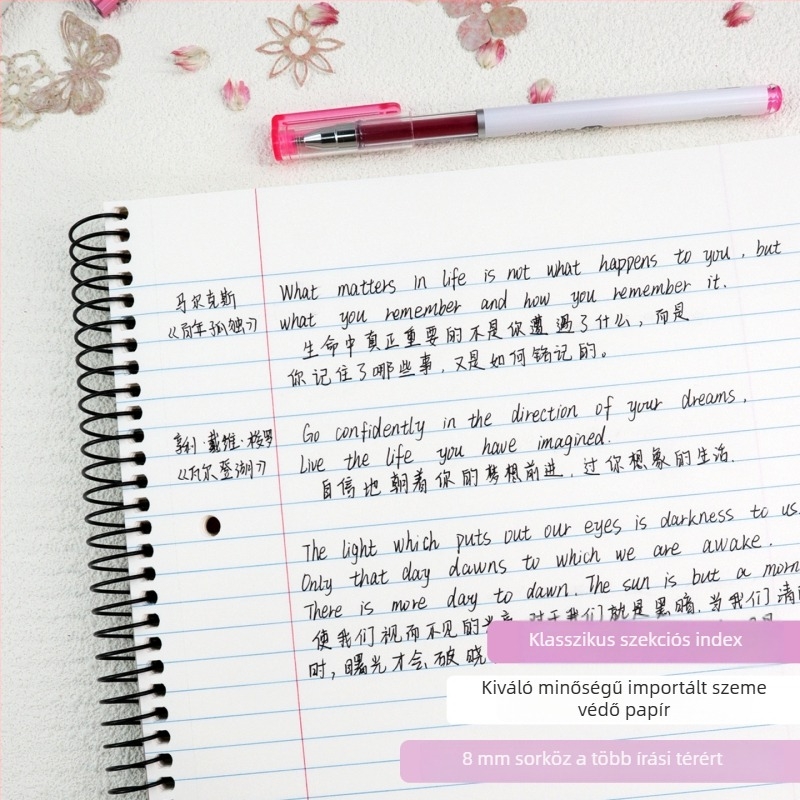 What matters in life is not what happens to you, but
马尔克斯
what you remember and how you remember it.
《百年孤独》
生命中真正重要的不是你遭遇了什么,而是
你记住了哪些事,又是如何铭记的。
Go confidently in the direction of your dreams.
亨利·戴维·梭罗
Live the life you have imagined.
《瓦尔登湖》
自信地朝着你的梦想前进,过你想象的生活.
The light which puts out our eyes is darkness to us.
Only that day dawns to which we are awake.
There is more day to dawn. The sun is but a morn
使我们视而不见的光亮,对于我们就是黑暗.当我们清
时,曙光才会破晓
Klasszikus szekciós index
Kiváló minőségű importált szeme
védő papír
8 mm sorköz a több írási térért